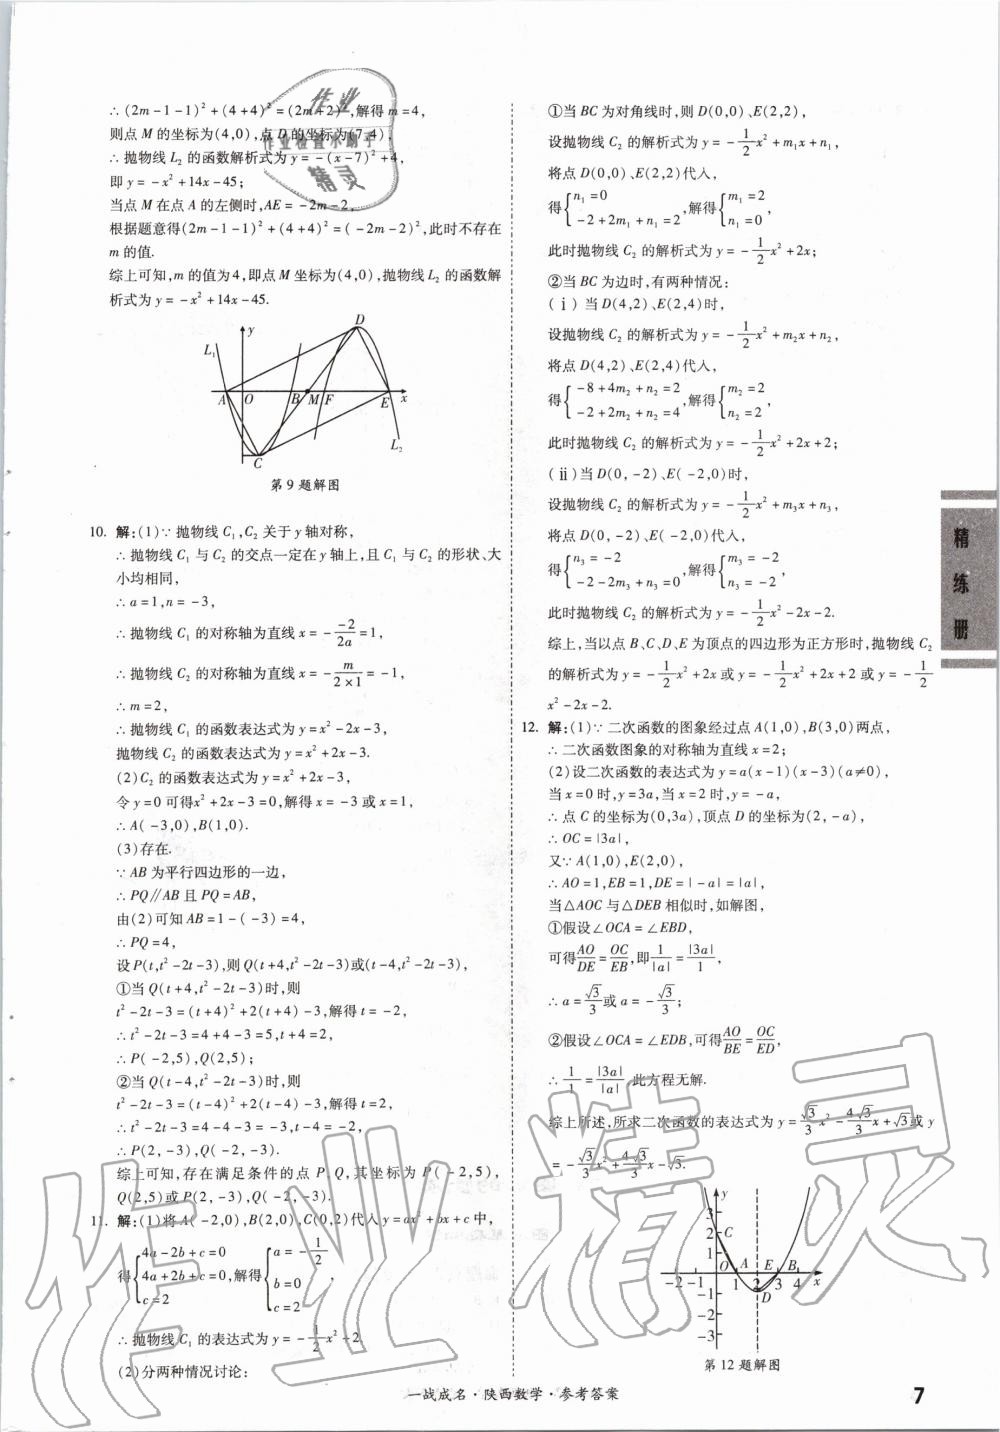 ∴(2m-1-1)²+(4+4)²=(2m+2)²,解得m=4,
则点M的坐标为(4,0),点D的坐标为(7,4),
∴抛物线L₂的函数解析式为y=-(x-7)²+4,
即y=-x²+14x-45;
当点M在点A的左侧时,AE=-2m-2,
根据题意得(2m-1-1)²+(4+4)²=(-2m-2)²,此时不存在
m的值.
综上可知,m的值为4,即点M坐标为(4,0),抛物线L₂的函数解
析式为y=-x²+14x-45.
y
D
L₁
A O B M F E x
L₂
C
第9题解图
10. 解:(1)∵抛物线C₁,C₂关于y轴对称,
∴抛物线C₁与C₂的交点一定在y轴上,且C₁与C₂的形状、大
小均相同,
∴a=1,n=-3,
∴抛物线C₁的对称轴为直线x=-\frac{-2}{2a}=1,
∴抛物线C₂的对称轴为直线x=-\frac{m}{2×1}=-1,
∴m=2,
∴抛物线C₁的函数表达式为y=x²-2x-3,
抛物线C₂的函数表达式为y=x²+2x-3.
(2)C₂的函数表达式为y=x²+2x-3,
令y=0可得x²+2x-3=0,解得x=-3或x=1,
∴A(-3,0),B(1,0).
(3)存在.
∵AB为平行四边形的一边,
∴PQ∥AB且PQ=AB,
由(2)可知AB=1-(-3)=4,
∴PQ=4,
设P(t,t²-2t-3),则Q(t+4,t²-2t-3)或(t-4,t²-2t-3),
①当Q(t+4,t²-2t-3)时,则
t²-2t-3=(t+4)²+2(t+4)-3,解得t=-2,
∴t²-2t-3=4+4-3=5,t+4=2,
∴P(-2,5),Q(2,5);
②当Q(t-4,t²-2t-3)时,则
t²-2t-3=(t-4)²+2(t-4)-3,解得t=2,
∴t²-2t-3=4-4-3=-3,t-4=-2,
∴P(2,-3),Q(-2,-3).
综上可知,存在满足条件的点P、Q,其坐标为P(-2,5),
Q(2,5)或P(2,-3),Q(-2,-3).
11. 解:(1)将A(-2,0),B(2,0),C(0,2)代入y=ax²+bx+c中,
得{4a-2b+c=0 4a+2b+c=0 c=2,解得{a=-\frac{1}{2} b=0 c=2,
∴抛物线C₁的表达式为y=-\frac{1}{2}x²+2.
(2)分两种情况讨论:
①当BC为对角线时,则D(0,0)、E(2,2),
设抛物线C₂的解析式为y=-\frac{1}{2}x²+m₁x+n₁,
将点D(0,0)、E(2,2)代入,
得{n₁=0 -2+2m₁+n₁=2,解得{m₁=2 n₁=0,
此时抛物线C₂的解析式为y=-\frac{1}{2}x²+2x;
②当BC为边时,有两种情况:
(ⅰ)当D(4,2)、E(2,4)时,
设抛物线C₂的解析式为y=-\frac{1}{2}x²+m₂x+n₂,
将点D(4,2)、E(2,4)代入,
得{-8+4m₂+n₂=2 -2+2m₂+n₂=4,解得{m₂=2 n₂=2,
此时抛物线C₂的解析式为y=-\frac{1}{2}x²+2x+2;
(ⅱ)当D(0,-2)、E(-2,0)时,
设抛物线C₂的解析式为y=-\frac{1}{2}x²+m₃x+n₃,
将点D(0,-2)、E(-2,0)代入,
得{n₃=-2 -2-2m₃+n₃=0,解得{m₃=-2 n₃=-2,
此时抛物线C₂的解析式为y=-\frac{1}{2}x²-2x-2.
综上,当以点B、C、D、E为顶点的四边形为正方形时,抛物线C₂
的解析式为y=-\frac{1}{2}x²+2x或y=-\frac{1}{2}x²+2x+2或y=-\frac{1}{2}
x²-2x-2.
12. 解:(1)∵二次函数的图象经过点A(1,0),B(3,0)两点,
∴二次函数图象的对称轴为直线x=2;
(2)设二次函数的表达式为y=a(x-1)(x-3)(a≠0),
当x=0时,y=3a,当x=2时,y=-a,
∴点C的坐标为(0,3a),顶点D的坐标为(2,-a),
∴OC=|3a|,
又∵A(1,0),E(2,0),
∴AO=1,EB=1,DE=|-a|=|a|,
当△AOC与△DEB相似时,如解图,
①假设∠OCA=∠EBD,
可得\frac{AO}{DE}=\frac{OC}{EB},即\frac{1}{|a|}=\frac{|3a|}{1},
∴a=\frac{√3}{3}或a=-\frac{√3}{3};
②假设∠OCA=∠EDB,可得\frac{AO}{BE}=\frac{OC}{ED},
∴\frac{1}{1}=\frac{|3a|}{|a|},此方程无解.
综上所述,所求二次函数的表达式为y=\frac{√3}{3}x²-\frac{4√3}{3}x+√3或y
=-\frac{√3}{3}x²+\frac{4√3}{3}x-√3.
y
3
2 C
1
A E B
-2 -1 O 1 2 3 4 x
-1 D
-2
-3
第12题解图
精练册
一战成名·陕西数学·参考答案
7
作业
作业检查小助手
精灵
作业精灵